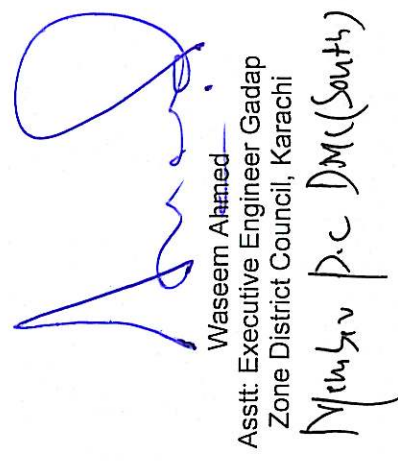 Waseem Ahmed
Asstt: Executive Engineer Gadap
Zone District Council, Karachi
Member P.C DMC(South)